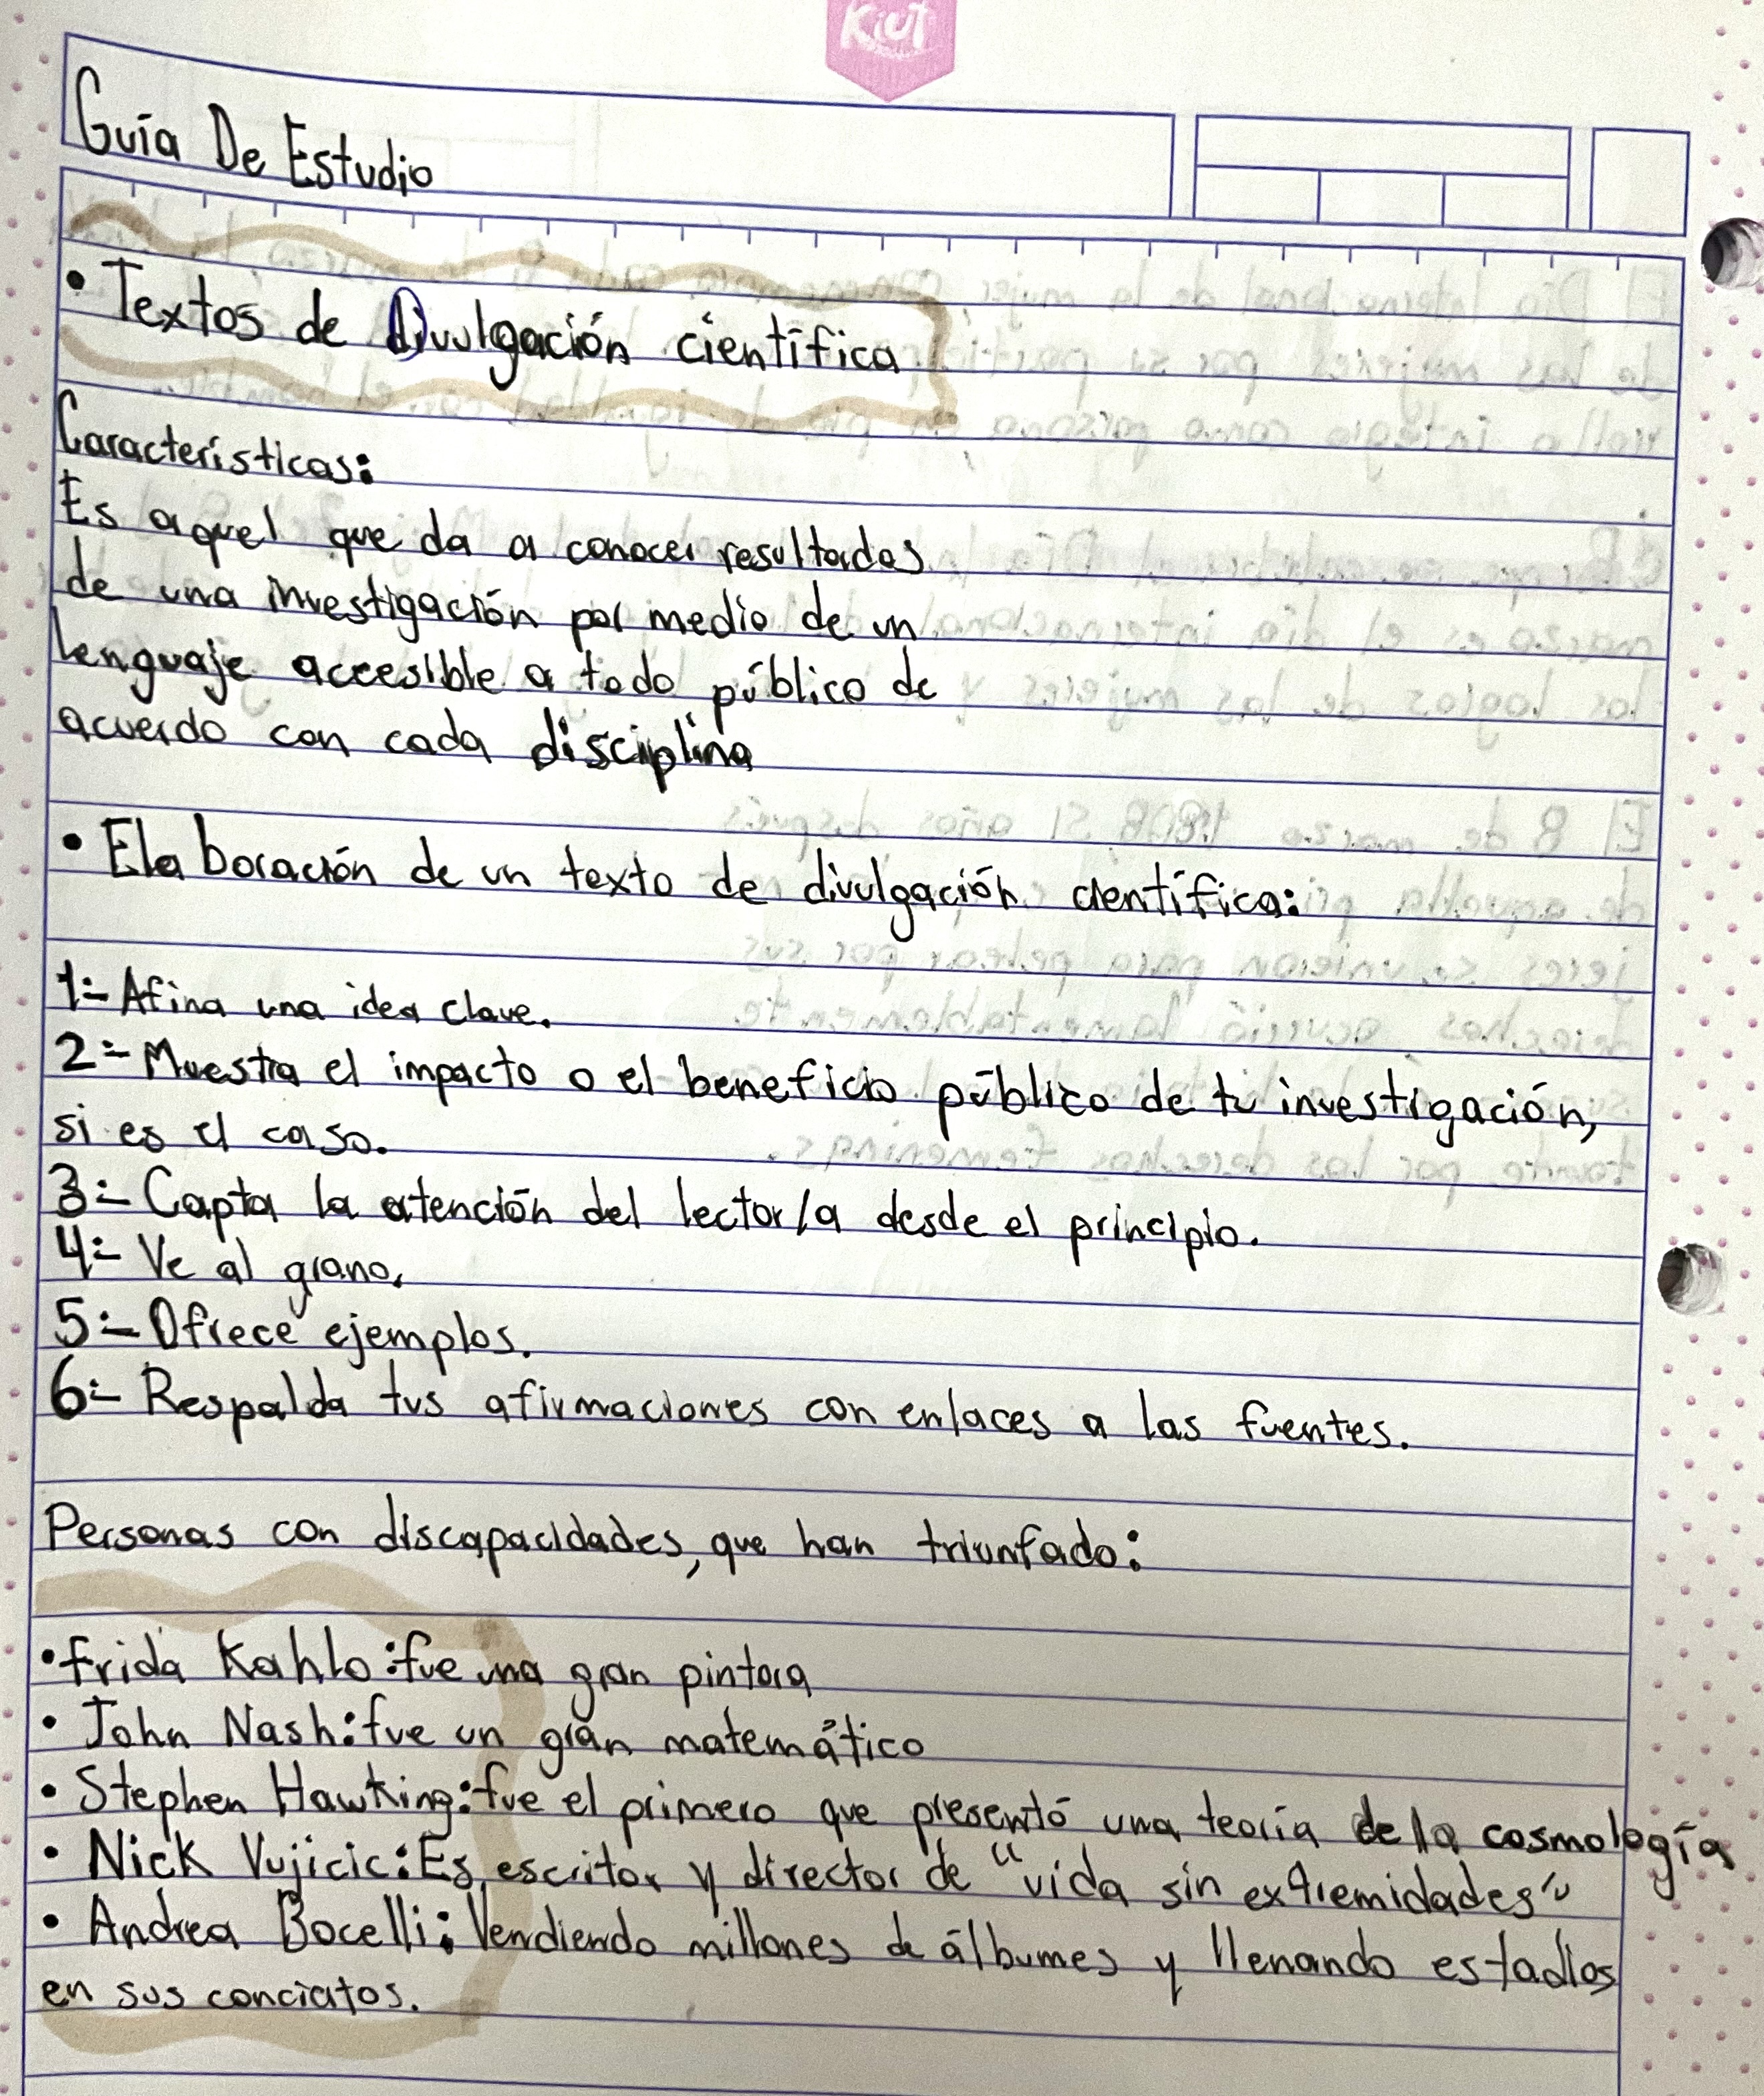 Kiut
Guía De Estudio
• Textos de Divulgación científica
Características:
Es aquel que da a conocer resultados
de una investigación por medio de un
lenguaje accesible a todo público de
acuerdo con cada disciplina
• Elaboración de un texto de divulgación científica:
1:- Afina una idea clave.
2:- Muestra el impacto o el beneficio público de tu investigación,
si es el caso.
3:- Capta la atención del lector/a desde el principio.
4:- Ve al grano.
5:- Ofrece ejemplos.
6:- Respalda tus afirmaciones con enlaces a las fuentes.
Personas con discapacidades, que han triunfado:
• Frida Kahlo: fue una gran pintora
• John Nash: fue un gran matemático
• Stephen Hawking: fue el primero que presentó una teoría de la cosmología
• Nick Vujicic: Es escritor y director de "vida sin extremidades"
• Andrea Bocelli: Vendiendo millones de álbumes y llenando estadios
en sus conciertos.